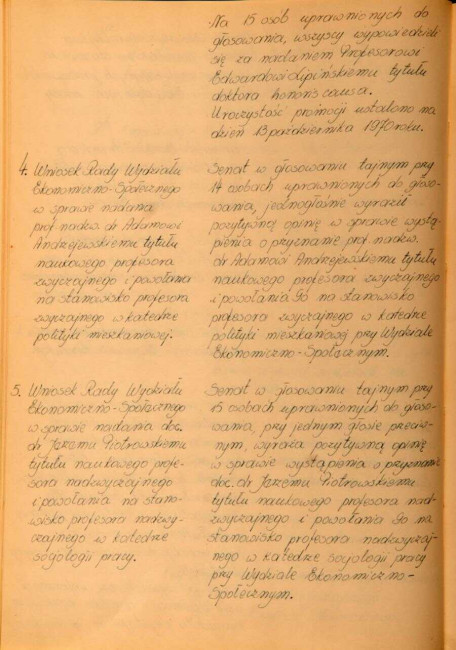 Na 15 osób uprawnionych do
głosowania, wszyscy wypowiedzieli
się za nadaniem Profesorowi
Edwardowi Lipińskiemu tytułu
doktora honoris causa.
Uroczystość promocji ustalono na
dzień 13 października 1970 roku.
4. Wniosek Rady Wydziału
Ekonomiczno-Społecznego
w sprawie nadania
prof. nadzw. dr Adamowi
Andrzejewskiemu tytułu
naukowego profesora
zwyczajnego i powołania
na stanowisko profesora
zwyczajnego w katedrze
polityki mieszkaniowej.
Senat w głosowaniu tajnym przy
14 osobach uprawnionych do głoso-
wania, jednogłośnie wyraził
pozytywną opinię w sprawie wystą-
pienia o przyznanie prof. nadzw.
dr Adamowi Andrzejewskiemu tytułu
naukowego profesora zwyczajnego
i powołania go na stanowisko
profesora zwyczajnego w katedrze
polityki mieszkaniowej przy Wydziale
Ekonomiczno-Społecznym.
5. Wniosek Rady Wydziału
Ekonomiczno-Społecznego
w sprawie nadania doc.
dr Jerzemu Piotrowskiemu
tytułu naukowego profe-
sora nadzwyczajnego
i powołania na stano-
wisko profesora nadzwy-
czajnego w katedrze
socjologii pracy.
Senat w głosowaniu tajnym przy
15 osobach uprawnionych do głoso-
wania, przy jednym głosie przeciw-
nym, wyraża pozytywną opinię
w sprawie wystąpienia o przyznanie
doc. dr Jerzemu Piotrowskiemu
tytułu naukowego profesora nad-
zwyczajnego i powołania go na
stanowisko profesora nadzwyczaj-
nego w katedrze socjologii pracy
przy Wydziale Ekonomiczno-
Społecznym.